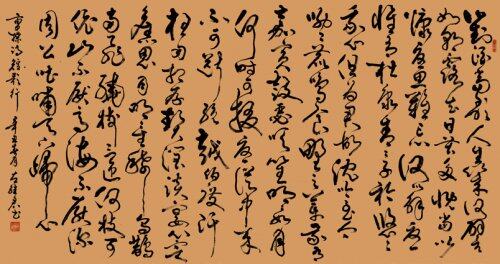 對酒當歌人生幾何譬
如朝露去日苦多慨當以
慷憂思難忘何以解憂
惟有杜康青青子衿悠悠
我心但為君故沉吟至今
呦呦鹿鳴食野之苹我有
嘉賓鼓瑟吹笙明明如月
何時可掇憂從中來
不可斷絕越陌度阡
枉用相存契闊談宴心念
舊恩月明星稀烏鵲
南飛繞樹三匝何枝可
依山不厭高海不厭深
周公吐哺天下歸心
曹操詩短歌行